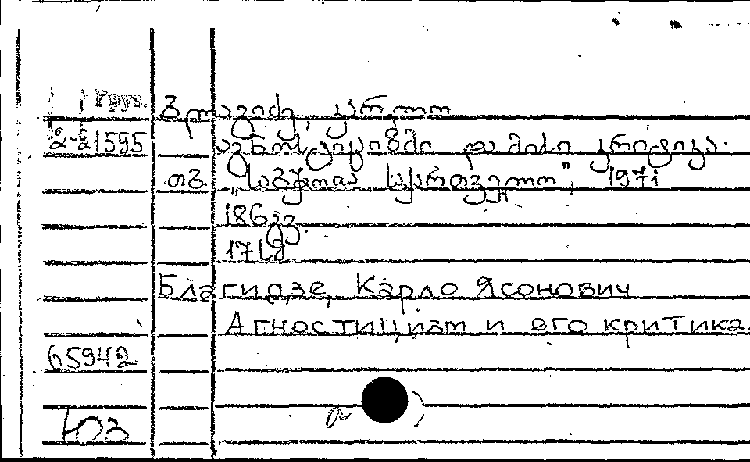 Груз.
ბლაგიძე, კარლო
2-21595
აგნოსტიციზმი და მისი კრიტიკა.
თბ. "საბჭოთა საქართველო", 1971
186გვ.
171ც
Благидзе, Карло Ясонович
Агностицизм и его критика.
65942
а